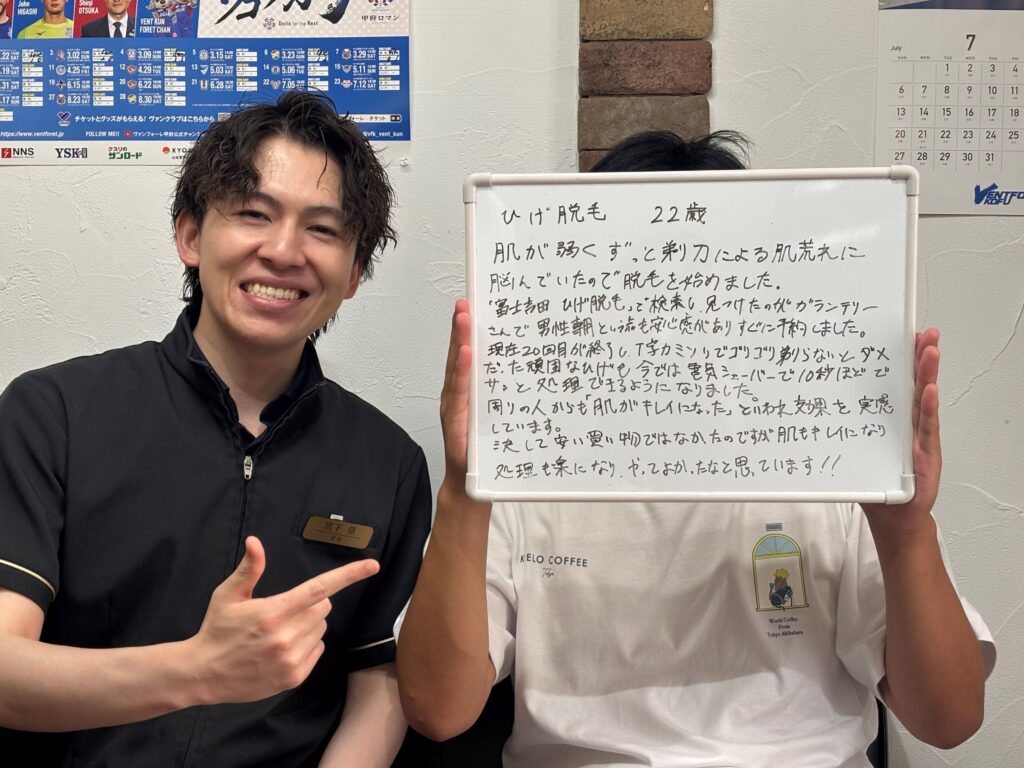 John
HIGASHI
Shinji
OTSUKA
VENT KUN
FORET CHAN
Unite for the Next
甲府ロマン
チケットとグッズがもらえる！ヴァンクラブはこちらから
https://www.ventforet.j
FOLLOW ME!!
@vfk_vent_kun
NNS
YSK
クスリの
サンロード
7
July
SUN MON TUE WED THU FRI SAT
1 2 3 4
6 7 8 9 10 11
13 14 15 16 17 18
20 21 22 23 24 25
27 28 29 30 31
VENTFO
KOFU
ひげ脱毛 22歳
肌が弱くずっと剃刀による肌荒れに
悩んでいたので脱毛を始めました。
「富士吉田 ひげ脱毛」で検索し、見つけたのがガランテリー
さんで男性専門という点も安心感がありすぐに予約しました。
現在20回目が終了し、T字カミソリでゴリゴリ剃らないとダメ
だった頑固なひげも今では電気シェーバーで10秒ほどで
サッと処理できるようになりました。
周りの人からも「肌がキレイになった」といわれ効果を実感
しています。
決して安い買い物ではなかったのですが肌もキレイになり
処理も楽になり、やってよかったなと思っています!!
宮下
KELO COFFEE
Tokyo
World Coffee
From
Tokyo Akihabara